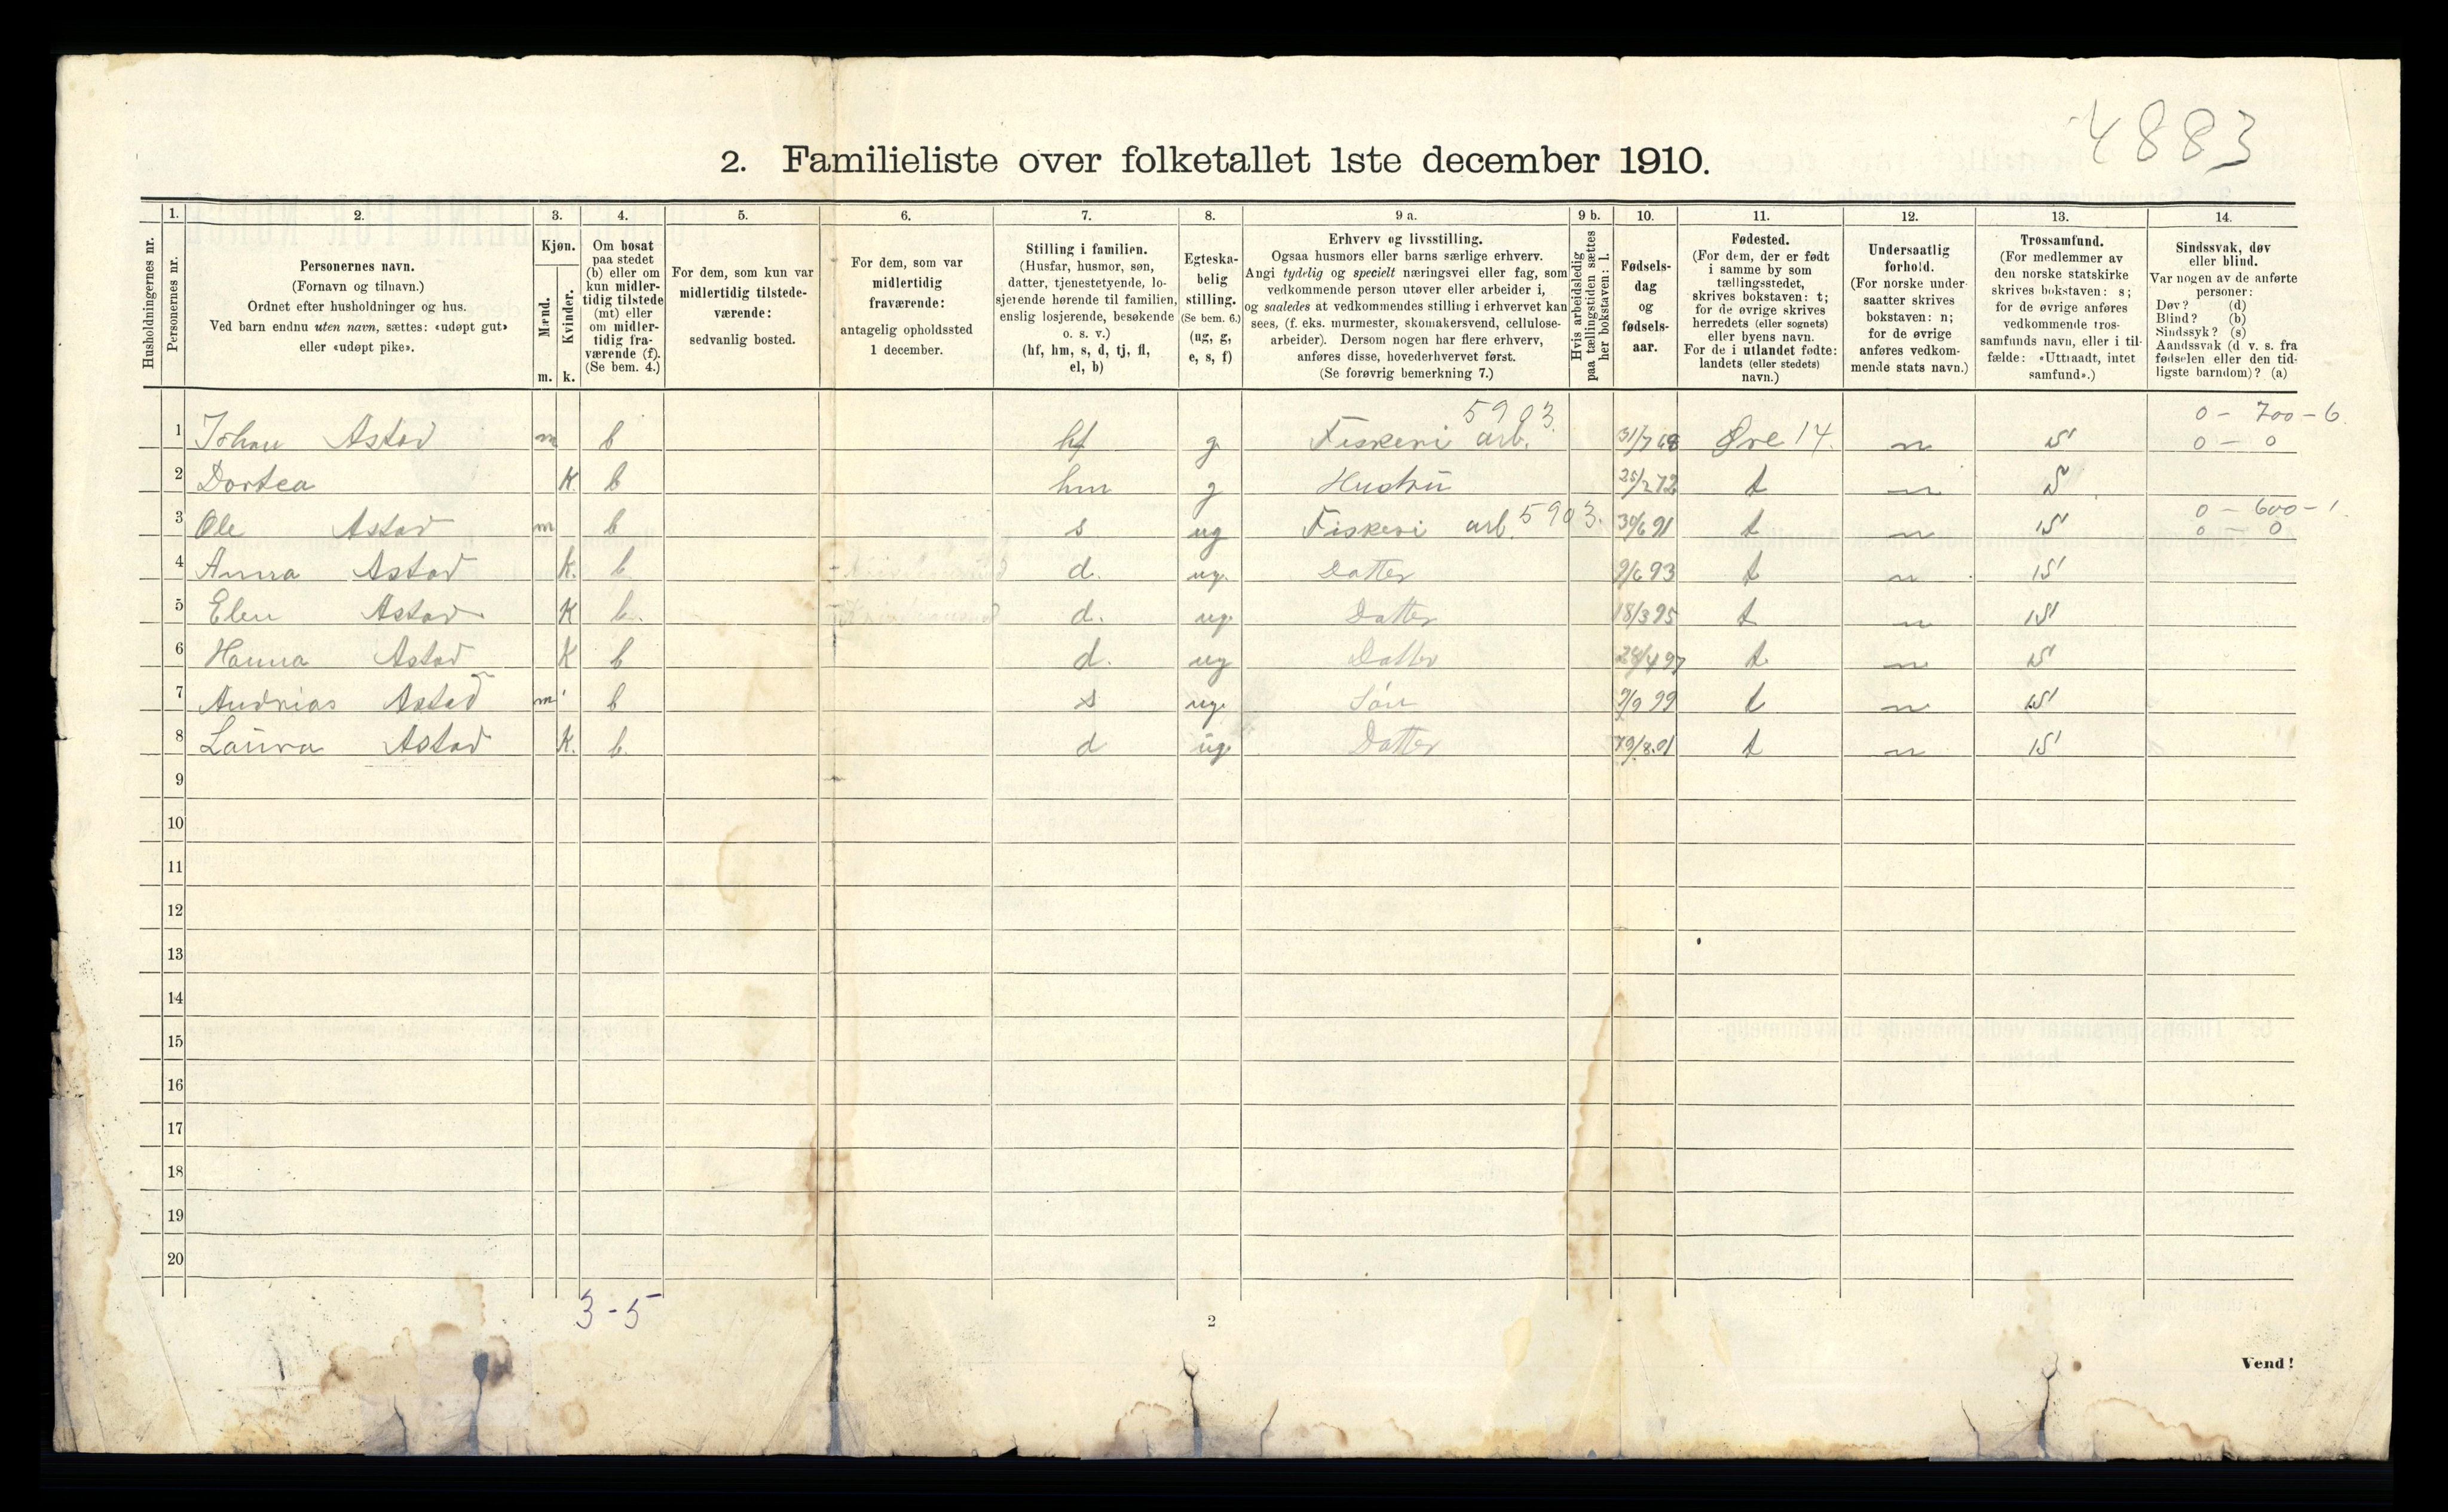 4883
2. Familieliste over folketallet 1ste december 1910.
Husholdningernes nr.
1.
Personernes nr.
2.
Personernes navn.
(Fornavn og tilnavn.)
Ordnet efter husholdninger og hus.
Ved barn endnu uten navn, sættes: «udøpt gut»
eller «udøpt pike».
3.
Kjøn.
Mænd.
m.
Kvinder.
k.
4.
Om bosat
paa stedet
(b) eller om
kun midler-
tidig tilstede
(mt) eller
om midler-
tidig fra-
værende (f).
(Se bem. 4.)
5.
For dem, som kun var
midlertidig tilstede-
værende:
sedvanlig bosted.
6.
For dem, som var
midlertidig
fraværende:
antagelig opholdssted
1 december.
7.
Stilling i familien.
(Husfar, husmor, søn,
datter, tjenestetyende, lo-
sjerende hørende til familien,
enslig losjerende, besøkende
o. s. v.)
(hf, hm, s, d, tj, fl,
el, b)
8.
Egteska-
belig
stilling.
(Se bem. 6.)
(ug, g,
e, s, f)
9 a.
Erhverv og livsstilling.
Ogsaa husmors eller barns særlige erhverv.
Angi tydelig og specielt næringsvei eller fag, som
vedkommende person utøver eller arbeider i,
og saaledes at vedkommendes stilling i erhvervet kan
sees, (f. eks. murmester, skomakersvend, cellulose-
arbeider). Dersom nogen har flere erhverv,
anføres disse, hovederhvervet først.
(Se forøvrig bemerkning 7.)
9 b.
Hvis arbeidsledig
paa tællingstiden sættes
her bokstaven: l.
10.
Fødsels-
dag
og
fødsels-
aar.
11.
Fødested.
(For dem, der er født
i samme by som
tællingsstedet,
skrives bokstaven: t;
for de øvrige skrives
herredets (eller sognets)
eller byens navn.
For de i utlandet fødte:
landets (eller stedets)
navn.)
12.
Undersaatlig
forhold.
(For norske under-
saatter skrives
bokstaven: n;
for de øvrige
anføres vedkom-
mende stats navn.)
13.
Trossamfund.
(For medlemmer av
den norske statskirke
skrives bokstaven: s;
for de øvrige anføres
vedkommende tros-
samfunds navn, eller i til-
fælde: «Uttraadt, intet
samfund».)
14.
Sindssvak, døv
eller blind.
Var nogen av de anførte
personer:
Døv? (d)
Blind? (b)
Sindssyk? (s)
Aandssvak (d. v. s. fra
fødselen eller den tid-
ligste barndom)? (a)
5903. 0 - 700 - 6
1 Johan Astad m b hf g Fiskeri arb. 31/7 68 Øre 14. n s 0 - 0
2 Dortea K b hm g Hustru 25/2 72 t n s
0 - 600 - 1
3 Ole Astad m b s ug Fiskeri arb. 5903. 30/6 91 t n s 0 - 0
4 Anna Astad K. b d. ug. Datter 9/6 93 t n s
5 Elen Astad K b. d. ug. Datter 18/3 95 t n s
6 Hanna Astad K b d. ug Datter 28/4 97 t n s
7 Andrias Astad m b s ug. Sön 9/9 99 t n s
8 Laura Astad K. b. d ug. Datter 19/8.01 t n s
9
10
11
12
13
14
15
16
17
18
19
20
3-5
2
Vend!